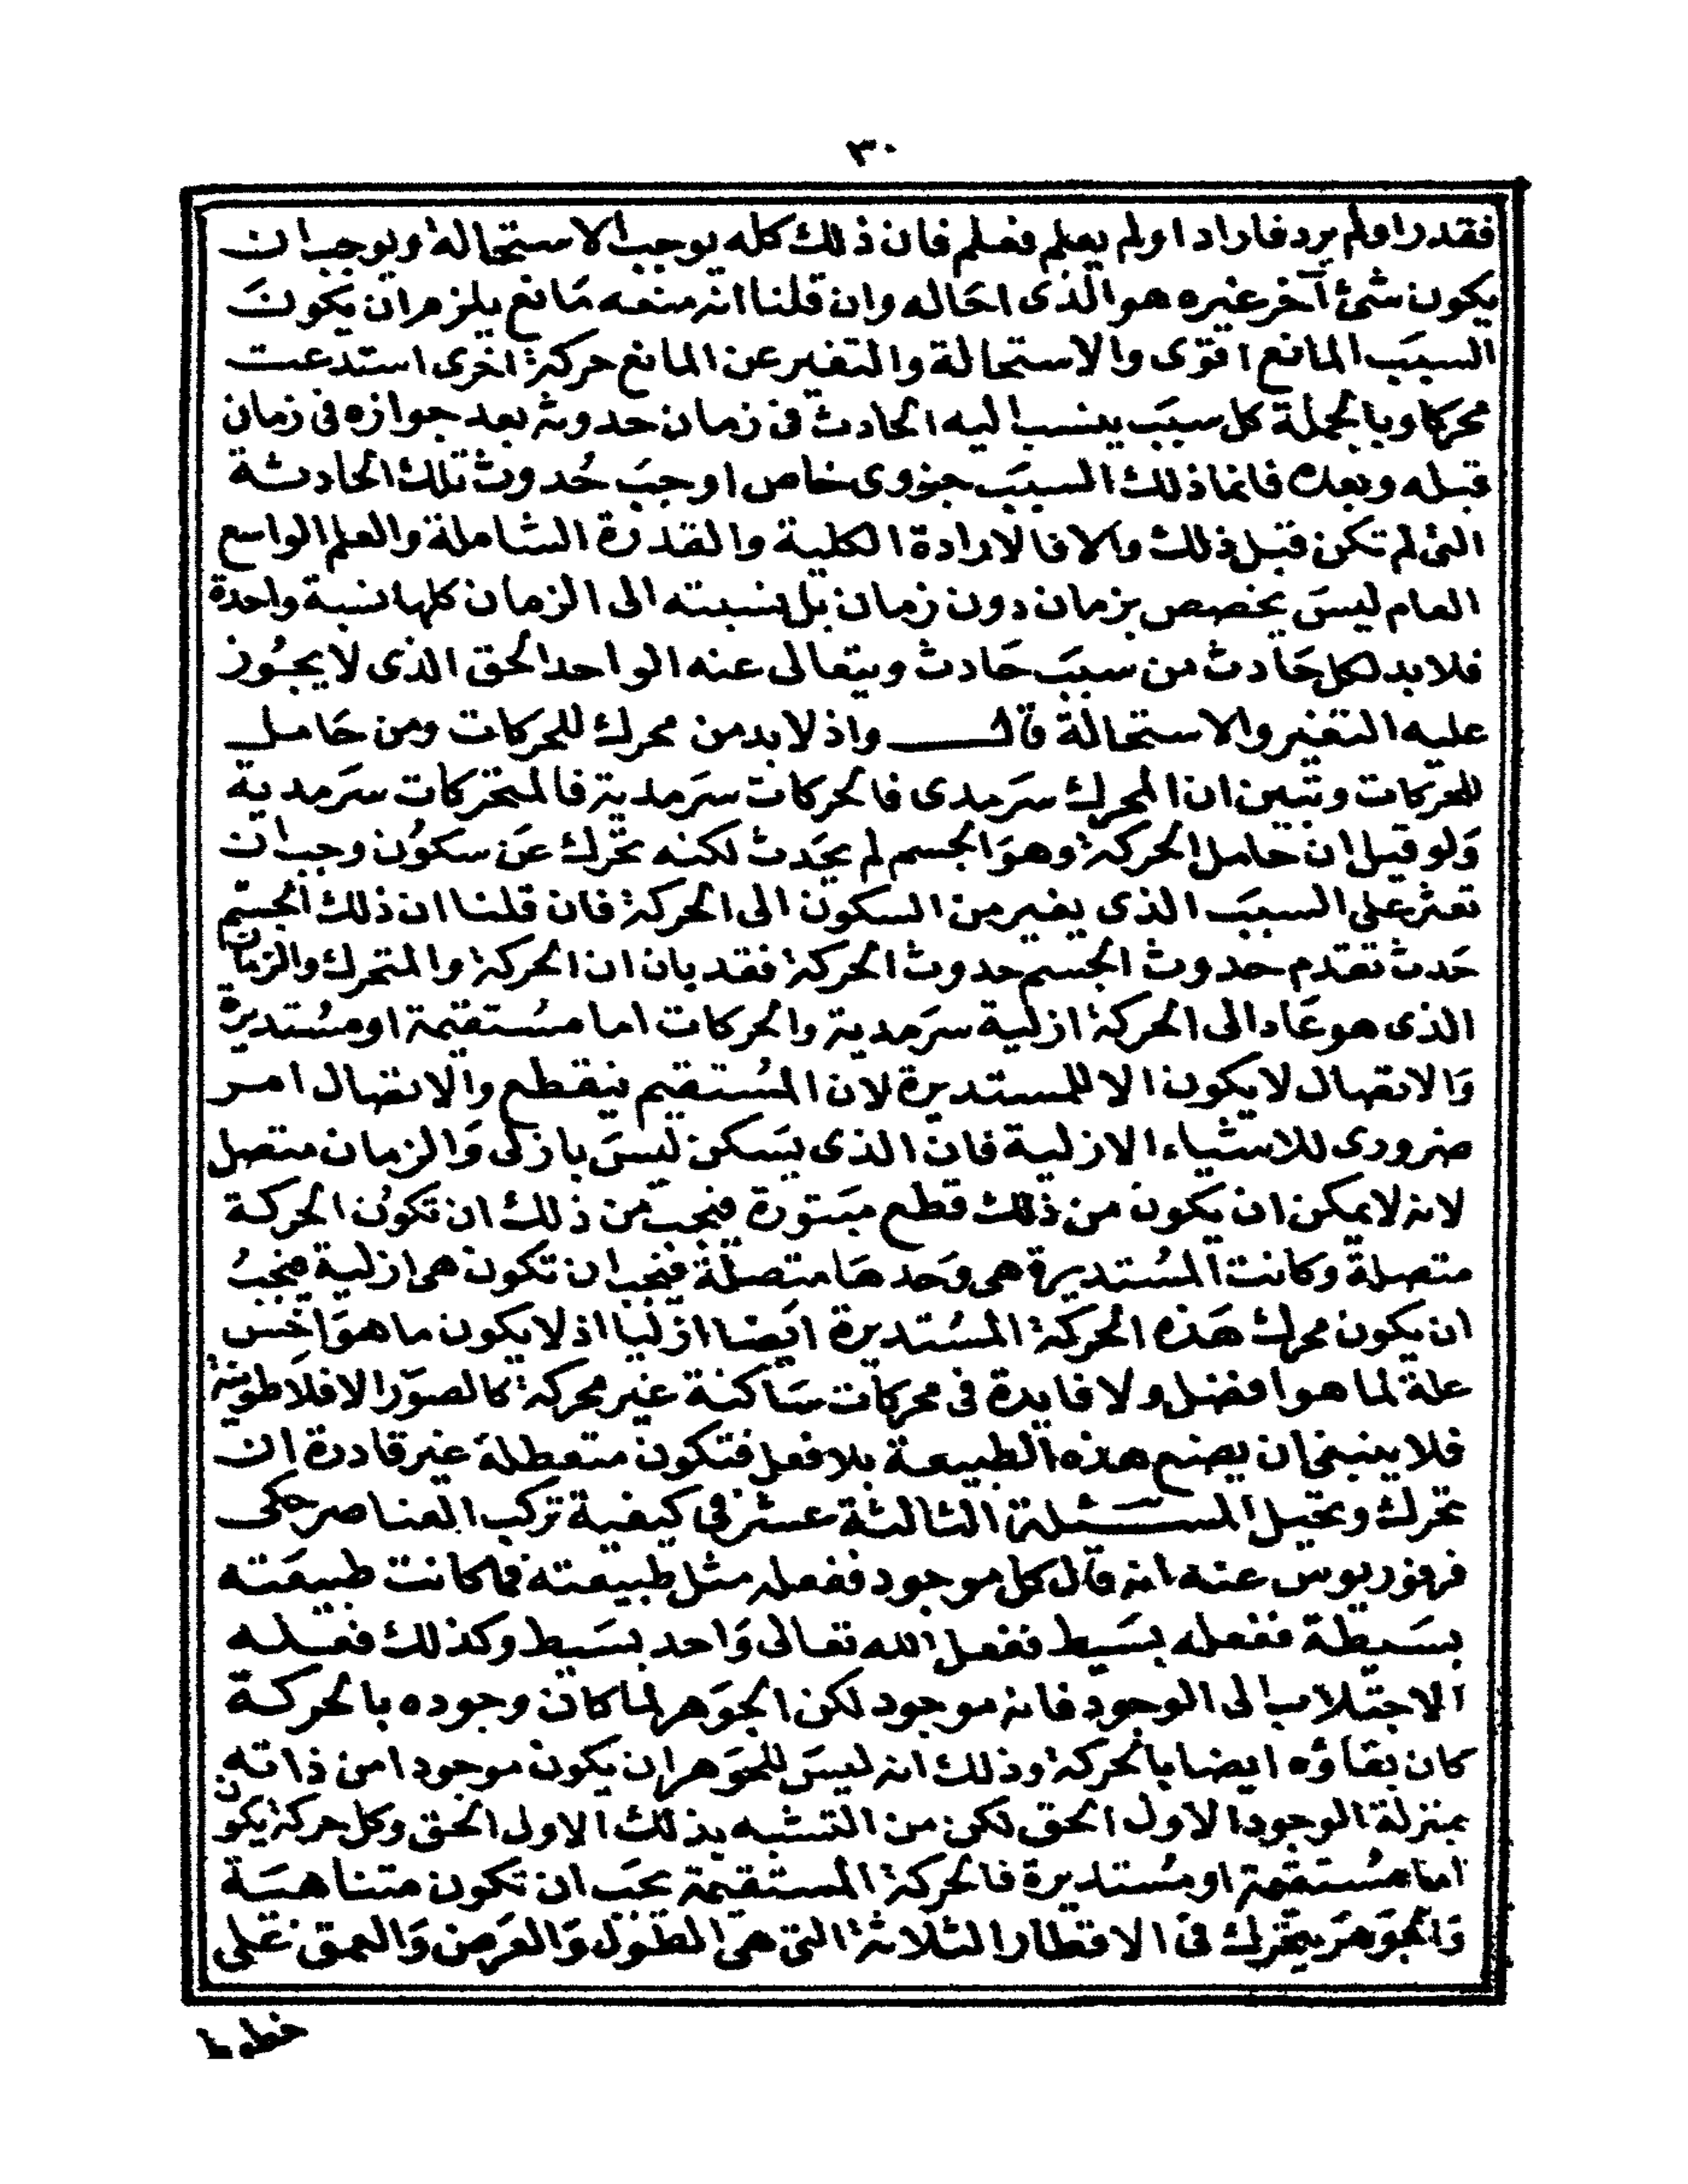 ٣٠
فقدر او لم يرد فاراد او لم يعلم فعلم فان ذلك كله يوجب الاستحالة ويوجب ان
يكون شئ آخر غيره هو الذى احاله وان قلنا انه منعه مانع يلزم ان يكون
السبب المانع اقوى والاستحالة والتغير عن المانع حركة اخرى استدعت
محركا وبالجملة كل سبب ينسب اليه الحادث فى زمان حدوثه بعد جوازه فى زمان
قبله وبعده فانما ذلك السبب جزوى خاص اوجب حدوث تلك الحادثة
التى لم تكن قبل ذلك والا فالارادة الكلية والقدرة الشاملة والعلم الواسع
العام ليس يخصص بزمان دون زمان بل نسبته الى الزمان كلها نسبة واحدة
فلا بد لكل حادث من سبب حادث ويتعالى عنه الواحد الحق الذى لا يجوز
عليه التغير والاستحالة قال واذ لا بد من محرك للحركات ومن حامل
للحركات وتبين ان المحرك سرمدى فالحركات سرمدية فالمتحركات سرمدية
ولو قيل ان حامل الحركة وهو الجسم لم يحدث لكنه تحرك عن سكون وجب ان
نعثر على السبب الذى يغير من السكون الى الحركة فان قلنا ان ذلك الجسم
حدث تقدم حدوث الجسم حدوث الحركة فقد بان ان الحركة والمتحرك والزمان
الذى هو عاد الى الحركة ازلية سرمدية والحركات اما مستقيمة او مستديرة
والاتصال لا يكون الا للمستديرة لان المستقيم ينقطع والاتصال امر
ضرورى للاشياء الازلية فان الذى يسكن ليس بازلى والزمان متصل
لانه لا يمكن ان يكون من ذلك قطع مبتورة فيجب من ذلك ان تكون الحركة
متصلة وكانت المستديرة هى وحدها متصلة فيجب ان تكون هى ازلية فيجب
ان يكون محرك هذه الحركة المستديرة ايضا ازليا اذ لا يكون ما هو اخس
علة لما هو افضل ولا فايدة فى محركات ساكنة غير محركة كالصور الافلاطونية
فلا ينبغى ان يصنع هذه الطبيعة بلا فعل فتكون متعطلة غير قادرة ان
تحرك وتحيل المسئلة الثالثة عشر فى كيفية تركب العناصر حكى
فرفوريوس عنه انه قال كل موجود ففعله مثل طبيعته فما كانت طبيعته
بسيطة ففعله بسيط ففعل الله تعالى واحد بسيط وكذلك فعله
الاجتلاب الى الوجود فانه موجود لكن الجوهر لما كان وجوده بالحركة
كان بقاؤه ايضا بالحركة وذلك انه ليس للجوهر ان يكون موجودا من ذاته
بمنزلة الوجود الاول الحق لكن من التشبه بذلك الاول الحق وكل حركة يكون
اما مستقيمة او مستديرة فالحركة المستقيمة يجب ان تكون متناهية
والجوهر يتحرك فى الاقطار الثلاثة التى هى الطول والعرض والعمق على